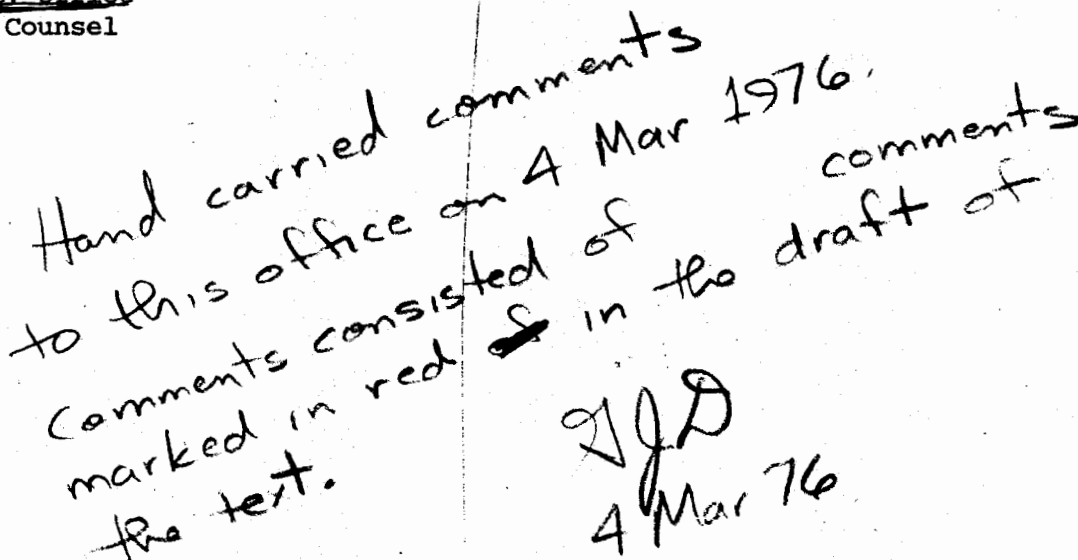 Counsel
Hand carried comments
to this office on 4 Mar 1976.
Comments consisted of comments
marked in red in the draft of
the text.
4 Mar 76